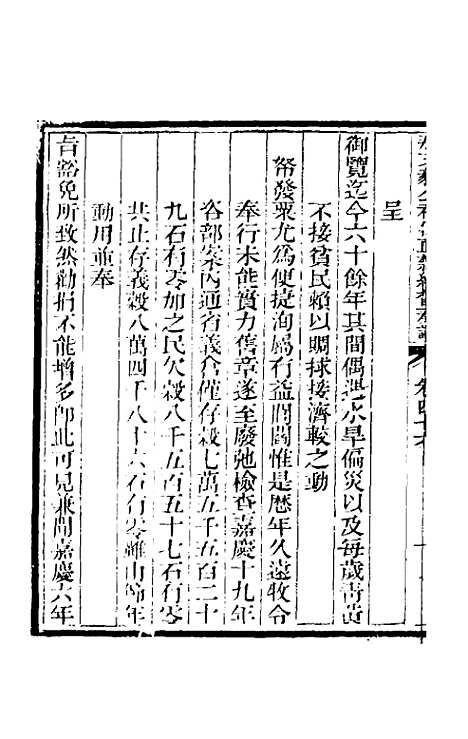 呈
御覽迄今六十餘年其間偶遇水旱偏災以及每歲青黃
不接貧民賴以賙捄接濟較之動
帑發粟尤爲便捷洵屬有益閭閻惟是歷年久遠牧令
奉行未能實力舊章遂至廢弛檢查嘉慶十九年
咨部案內通省義倉僅存穀七萬五千五百二十
九石有零加之民欠穀八千五百五十七石有零
共止存義穀八萬四千八十六石有零雖由節年
動用並奉
旨豁免所致然勸捐不能增多卽此可見兼聞嘉慶六年